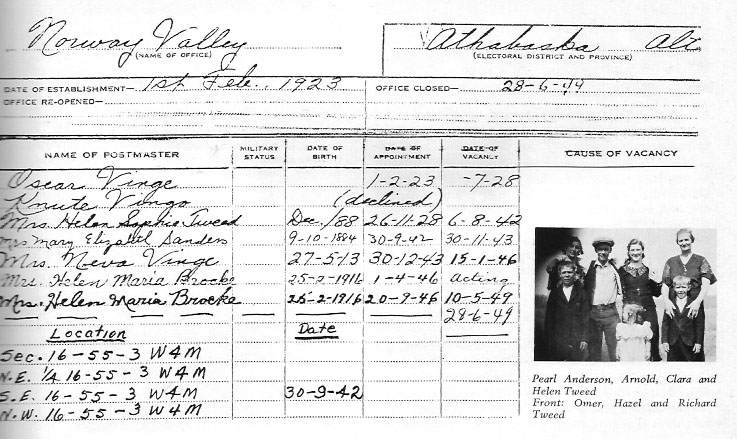 Norway Valley
(NAME OF OFFICE)
Athabaska Alt.
(ELECTORAL DISTRICT AND PROVINCE)
DATE OF ESTABLISHMENT— 1st Feb., 1923
OFFICE CLOSED— 28-6-49
OFFICE RE-OPENED—
NAME OF POSTMASTER MILITARY STATUS DATE OF BIRTH DATE OF APPOINTMENT DATE OF VACANCY CAUSE OF VACANCY
Oscar Vinge 1-2-23 -7-28
Knute Vinge (declined)
Mrs. Helen Sophie Tweed Dec./88 26-11-28 6-8-42
Mrs Mary Elizabeth Sanders 9-10-1884 30-9-42 30-11-43
Mrs. Neva Vinge 27-5-13 30-12-43 15-1-46
Mrs. Helen Maria Brocke 25-2-1916 1-4-46 acting
Mrs. Helen Maria Brocke 25-2-1916 20-9-46 10-5-49
28-6-49
Location Date
Sec. 16-55-3 W4M
N.E. 1/4 16-55-3 W4M
S.E. 16-55-3 W4M 30-9-42
N.W. 16-55-3 W4M
Pearl Anderson, Arnold, Clara and
Helen Tweed
Front: Omer, Hazel and Richard
Tweed